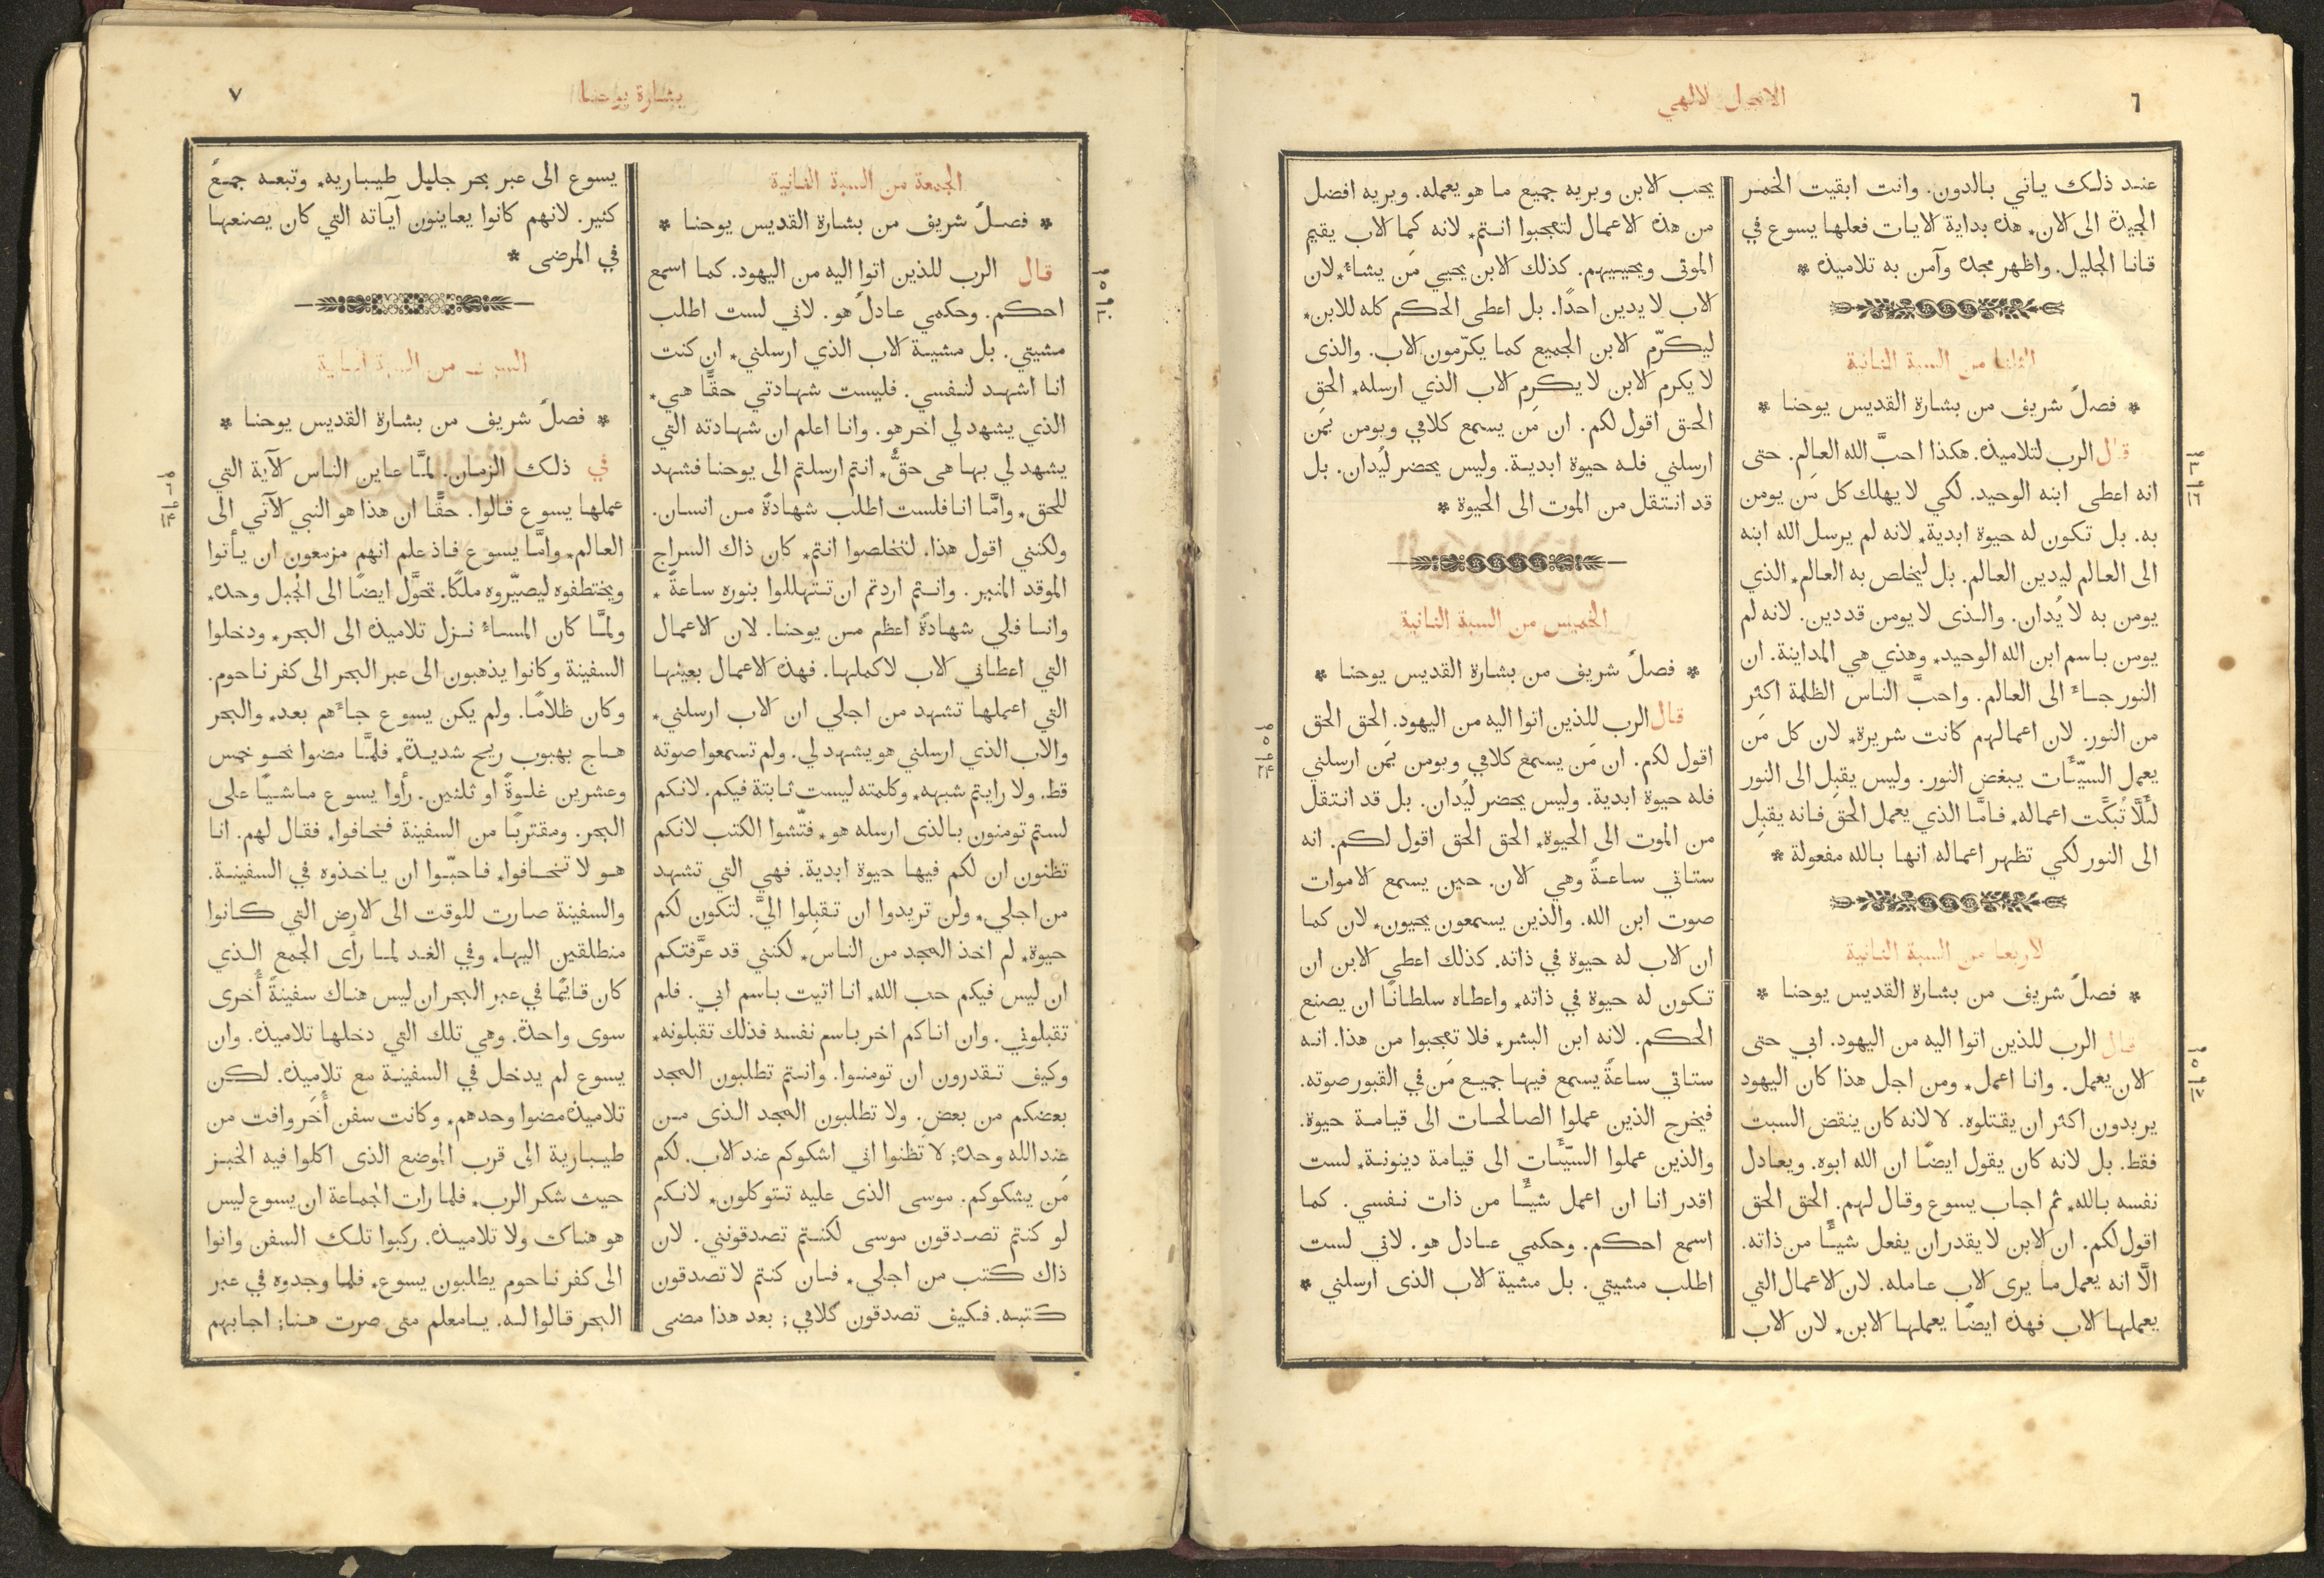 ٦
الانجيل الالهي
عند ذلك ياتي بالدون. وانت ابقيت الخمر
الجيدة الى الان٭ هذه بداية الايات فعلها يسوع في
قانا الجليل. واظهر مجده وآمن به تلاميذه ٭
الثلثا من السبة الثانية
٭ فصلٌ شريف من بشارة القديس يوحنا ٭
قال الرب لتلاميذه. هكذا احبَّ الله العالم. حتى
انه اعطى ابنه الوحيد. لكي لا يهلك كل مَن يومن
به. بل تكون له حيوة ابدية٭ لانه لم يرسل الله ابنه
الى العالم ليدين العالم. بل ليخلص به العالم٭ الذي
يومن به لا يُدان. والذى لا يومن قد دين. لانه لم
يومن باسم ابن الله الوحيد٭ وهذي هي المداينة. ان
النور جاءَ الى العالم. واحبَّ الناس الظلمة اكثر
من النور. لان اعمالهم كانت شريرة٭ لان كل مَن
يعمل السيّئَات يبغض النور. وليس يقبل الى النور
لئَلَّا تُبكَّت اعماله٭ فامَّا الذي يعمل الحق فانه يقبل
الى النور لكي تظهر اعماله انها بالله مفعولة ٭
الاربعا من السبة الثانية
٭ فصلٌ شريف من بشارة القديس يوحنا ٭
قال الرب للذين اتوا اليه من اليهود. ابي حتى
الان يعمل. وانا اعمل٭ ومن اجل هذا كان اليهود
يريدون اكثر ان يقتلوه. لا لانه كان ينقض السبت
فقط. بل لانه كان يقول ايضًا ان الله ابوه. ويعادل
نفسه بالله٭ ثم اجاب يسوع وقال لهم. الحق الحق
اقول لكم. ان الابن لا يقدر ان يفعل شيئًا من ذاته.
الَّا انه يعمل ما يرى الاب عامله. لان الاعمال التي
يعملها الاب فهذه ايضًا يعملها الابن٭ لان الاب
يحب الابن ويريه جميع ما هو يعمله. ويريه افضل
من هذه الاعمال لتعجبوا انتم٭ لانه كما الاب يقيم
الموتى ويحييهم. كذلك الابن يحيي مَن يشاءُ٭ لان
الاب لا يدين احدًا. بل اعطى الحكم كله للابن٭
ليكرّم الابن الجميع كما يكرّمون الاب. والذى
لا يكرم الابن لا يكرم الاب الذي ارسله٭ الحق
الحق اقول لكم. ان مَن يسمع كلامي ويومن بمَن
ارسلني فله حيوة ابدية. وليس يحضر ليُدان. بل
قد انتقل من الموت الى الحيوة ٭
الخميس من السبة الثانية
٭ فصلٌ شريف من بشارة القديس يوحنا ٭
قال الرب للذين اتوا اليه من اليهود. الحق الحق
اقول لكم. ان مَن يسمع كلامي ويومن بمَن ارسلني
فله حيوة ابدية. وليس يحضر ليُدان. بل قد انتقل
من الموت الى الحيوة٭ الحق الحق اقول لكم. انه
ستاتي ساعةٌ وهي الان. حين يسمع الاموات
صوت ابن الله. والذين يسمعون يحيون٭ لان كما
ان الاب له حيوة في ذاته. كذلك اعطى الابن ان
تكون له حيوة في ذاته٭ واعطاه سلطانًا ان يصنع
الحكم. لانه ابن البشر٭ فلا تعجبوا من هذا. انه
ستاتي ساعةٌ يسمع فيها جميع مَن في القبور صوته.
فيخرج الذين عملوا الصالحات الى قيامة حيوة.
والذين عملوا السيّئَات الى قيامة دينونة٭ لست
اقدر انا ان اعمل شيئًا من ذات نفسي. كما
اسمع احكم. وحكمي عادل هو. لاني لست
اطلب مشيتي. بل مشية الاب الذى ارسلني ٭
بشارة يوحنا
٧
الجمعة من السبة الثانية
٭ فصلٌ شريف من بشارة القديس يوحنا ٭
قال الرب للذين اتوا اليه من اليهود. كما اسمع
احكم. وحكمي عادلٌ هو. لاني لست اطلب
مشيتي. بل مشية الاب الذي ارسلني٭ ان كنت
انا اشهد لنفسي. فليست شهادتي حقًّا هي٭
الذي يشهد لي اخر هو. وانا اعلم ان شهادته التي
يشهد لي بها هى حقٌّ٭ انتم ارسلتم الى يوحنا فشهد
للحق٭ وامَّا انا فلست اطلب شهادةً من انسان.
ولكنني اقول هذا. لتخلصوا انتم٭ كان ذاك السراج
الموقد المنير. وانتم اردتم ان تتهللوا بنوره ساعةً ٭
وانا فلي شهادةٌ اعظم من يوحنا. لان الاعمال
التي اعطاني الاب لاكملها. فهذه الاعمال بعينها
التي اعملها تشهد من اجلي ان الاب ارسلني٭
والاب الذي ارسلني هو يشهد لي. ولم تسمعوا صوته
قط. ولا رايتم شبهه٭ وكلمته ليست ثابتة فيكم. لانكم
لستم تومنون بالذى ارسله هو٭ فتّشوا الكتب لانكم
تظنون ان لكم فيها حيوة ابدية. فهي التي تشهد
من اجلي٭ ولن تريدوا ان تقبلوا اليَّ. لتكون لكم
حيوة٭ لم اخذ المجد من الناس٭ لكنني قد عرَّفتكم
ان ليس فيكم حب الله٭ انا اتيت باسم ابي. فلم
تقبلوني. وان اتاكم اخر باسم نفسه فذلك تقبلونه٭
وكيف تقدرون ان تومنوا. وانتم تطلبون المجد
بعضكم من بعض. ولا تطلبون المجد الذى من
عند الله وحده; لا تظنوا اني اشكوكم عند الاب. لكم
مَن يشكوكم. موسى الذى عليه تتوكلون٭ لانكم
لو كنتم تصدقون موسى لكنتم تصدقونني. لان
ذاك كتب من اجلي٭ فان كنتم لا تصدقون
كتبه. فكيف تصدقون كلامي; بعد هذا مضى
يسوع الى عبر بحر جليل طيباريه٭ وتبعه جمعٌ
كثير. لانهم كانوا يعاينون آياته التي كان يصنعها
في المرضى ٭
السبت من السبة الثانية
٭ فصلٌ شريف من بشارة القديس يوحنا ٭
في ذلك الزمان. لمَّا عاين الناس الآية التي
عملها يسوع قالوا. حقًّا ان هذا هو النبي الآتي الى
العالم٭ وامَّا يسوع فاذ علم انهم مزمعون ان يأتوا
ويختطفوه ليصيّروه ملكًا. تحوَّل ايضًا الى الجبل وحده٭
ولمَّا كان المساءُ نزل تلاميذه الى البحر٭ ودخلوا
السفينة وكانوا يذهبون الى عبر البحر الى كفرناحوم.
وكان ظلامًا. ولم يكن يسوع جاءَهم بعد٭ والبحر
هاج بهبوب ريح شديدة٭ فلمَّا مضوا نحو خمس
وعشرين غلوةً او ثلثين. رأوا يسوع ماشيًا على
البحر. ومقتربًا من السفينة فخافوا٭ فقال لهم. انا
هو لا تخافوا٭ فاحبّوا ان ياخذوه في السفينة.
والسفينة صارت للوقت الى الارض التي كانوا
منطلقين اليها٭ وفي الغد لما رأى الجمع الذي
كان قائمًا في عبر البحر ان ليس هناك سفينةٌ أُخرى
سوى واحدة. وهي تلك التي دخلها تلاميذه. وان
يسوع لم يدخل في السفينة مع تلاميذه. لكن
تلاميذه مضوا وحدهم٭ وكانت سفن أُخَر وافت من
طيبارية الى قرب الموضع الذى اكلوا فيه الخبز
حيث شكر الرب٭ فلما رات الجماعة ان يسوع ليس
هو هناك ولا تلاميذه. ركبوا تلك السفن واتوا
الى كفرناحوم يطلبون يسوع٭ فلما وجدوه في عبر
البحر قالوا له. يا معلم متى صرت هنا; اجابهم